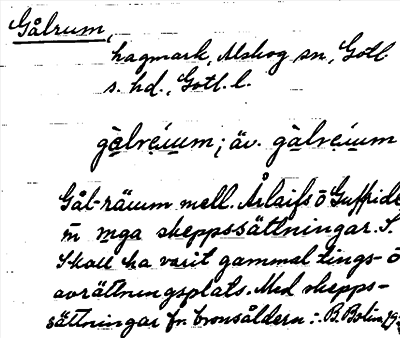 Gålrum,
hagmark, Alskog sn, Gotl.
s. hd., Gotl. l.
gålreium; äv. gàlreium
Gål-räium mell. Årlaifs o Guffride
m mga skeppssättningar. S.
Skall ha varit gammal tings- o
avrättningsplats. Med skepps-
sättningar fr bronsåldern :. B. Bolin